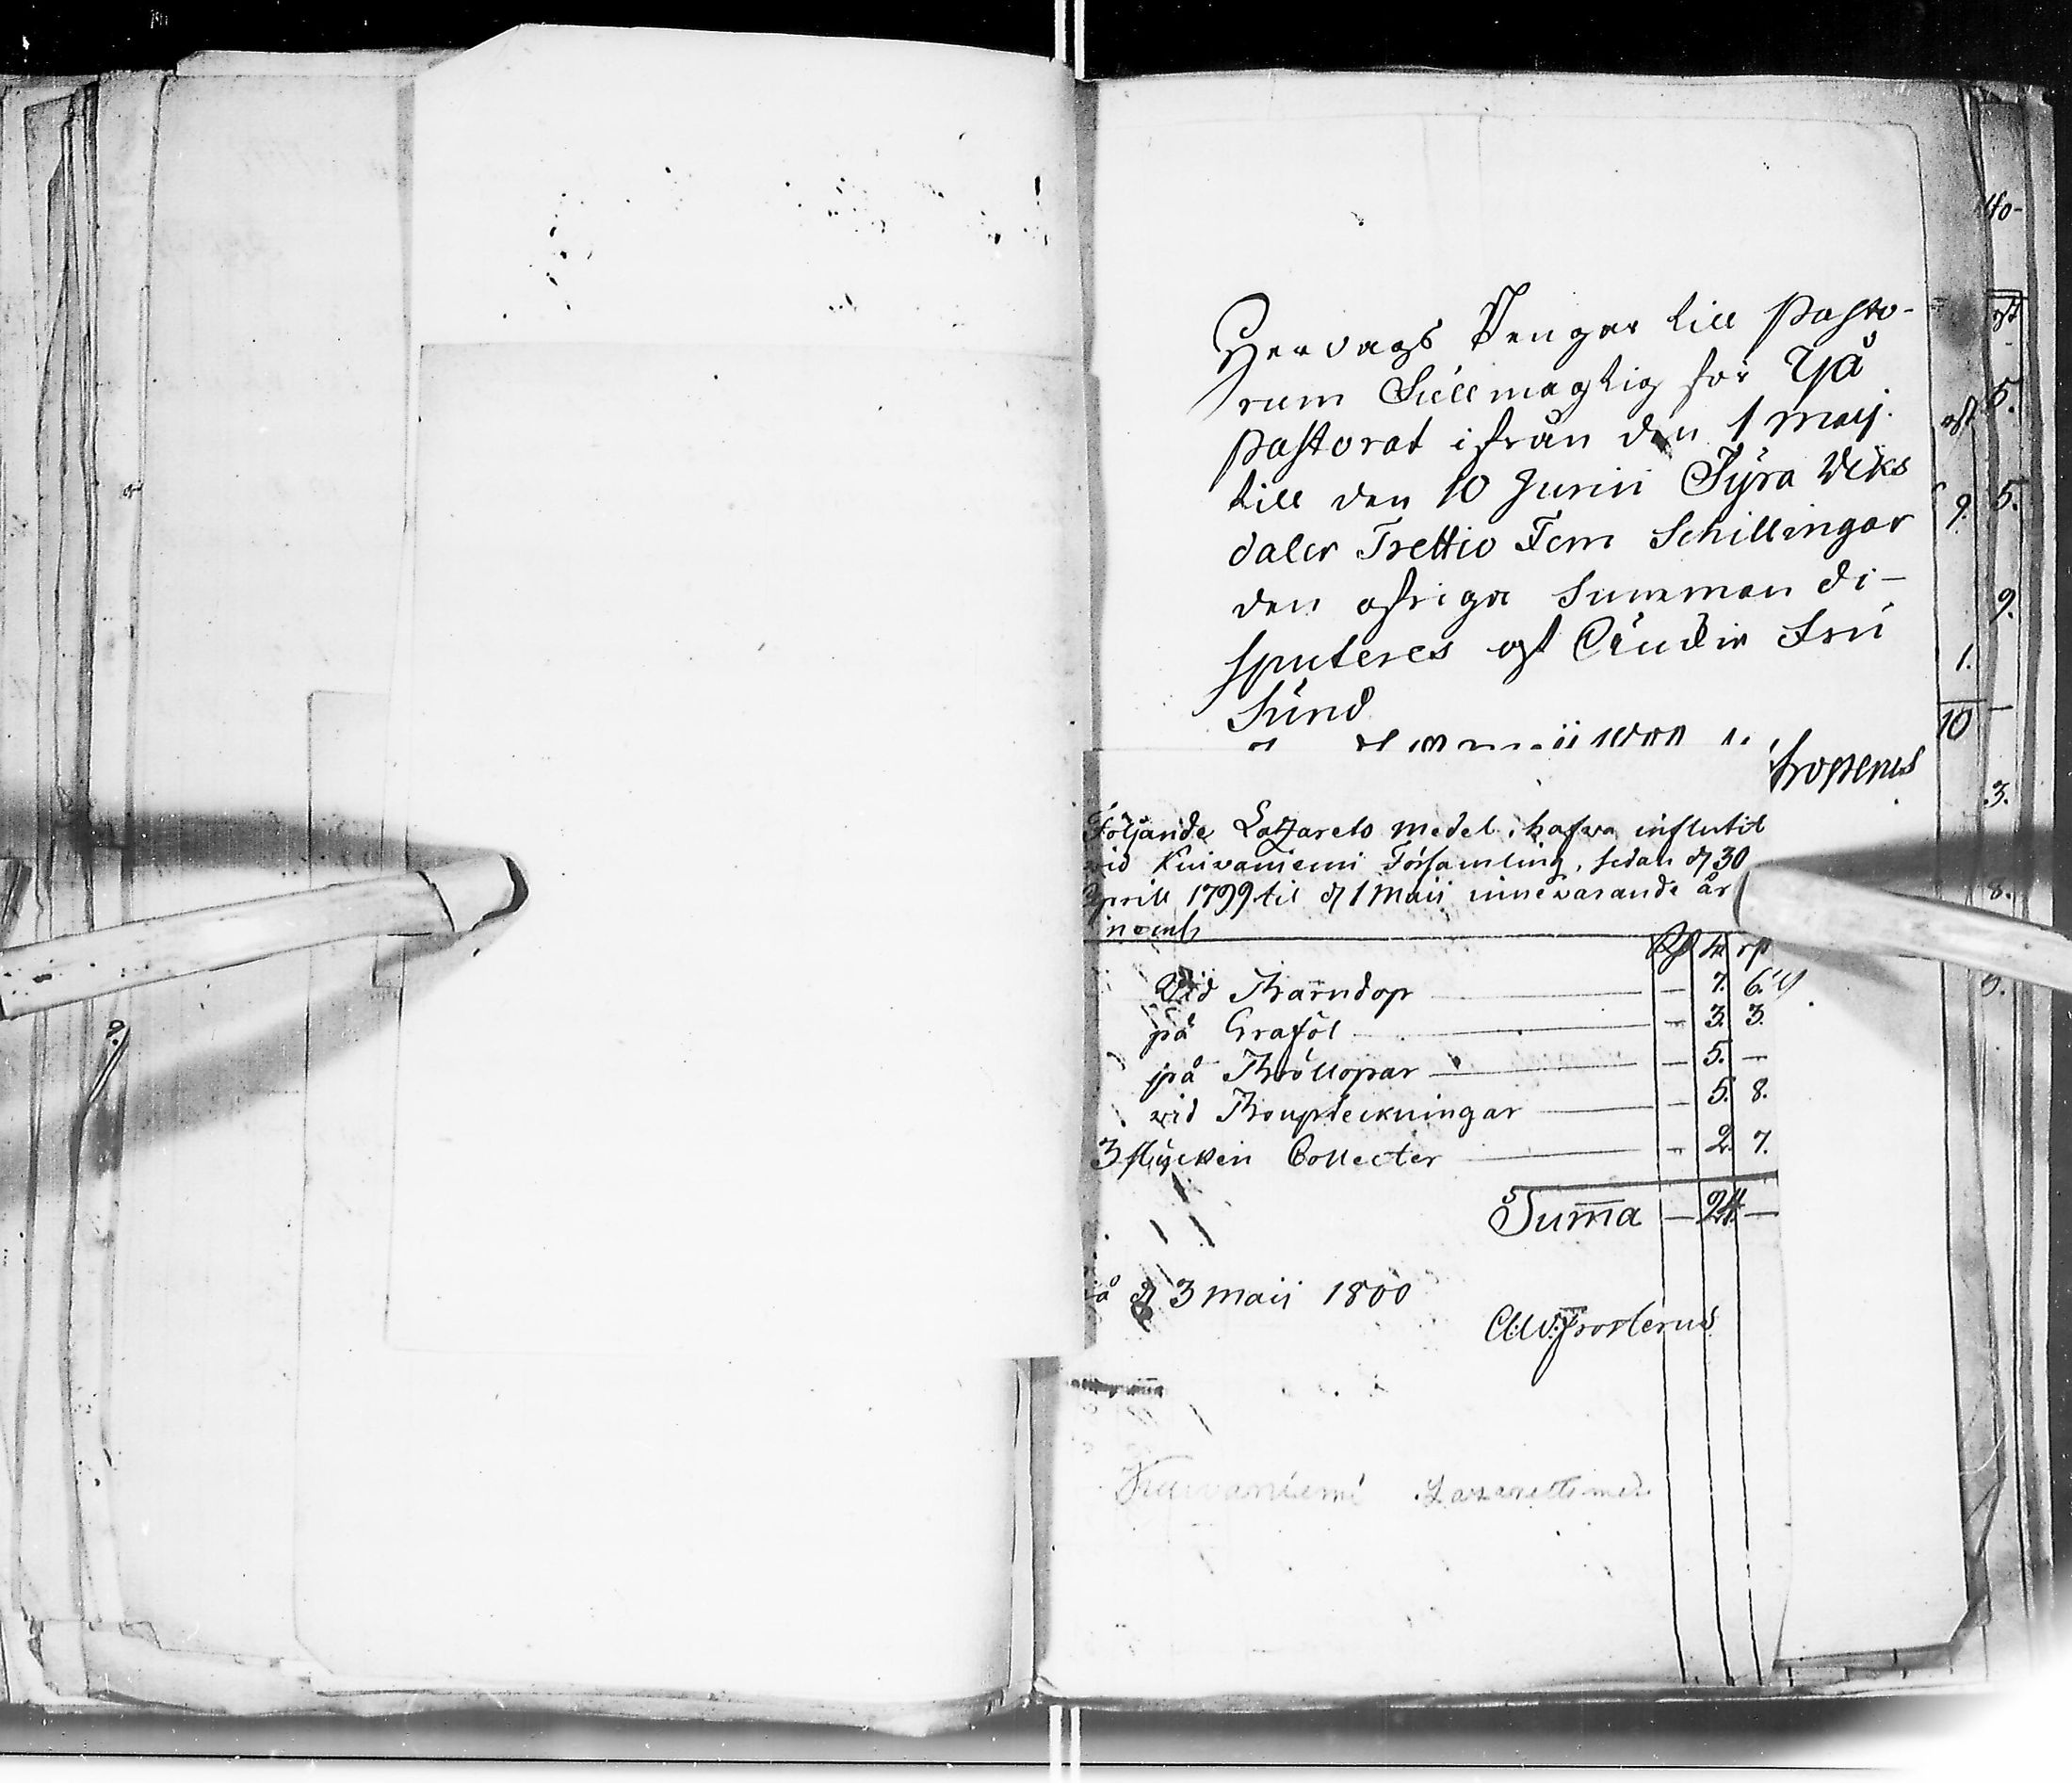 Pengar till Pasto-
rum Fullmagtig för Yjå
Pastorat ifrån den 1 Maij
till den 10 Junii Fyra Riks
daler Trettio Fem Schillingar
den öfriga Summan di-
sputeres af Fru
Lund
Frosterus
Följande Latzarets medel, hafwa influtit
wid Kuivaniemi Församling, sedan d 30
Aprill 1799 til d 1 Maii innewarande år
Rd ss rp
Wid Barndop — 7. 6.
på Graföl — 3. 3.
på Bröllopar — 5. —
wid — 5. 8.
3 stycken Collecter — 2. 7.
Summa — 24. —
Ijå d 3 Maii 1800
Frosterus
Kuivaniemi Lazarettmed.
9. 5.
9.
1.
10 —
3.
8.